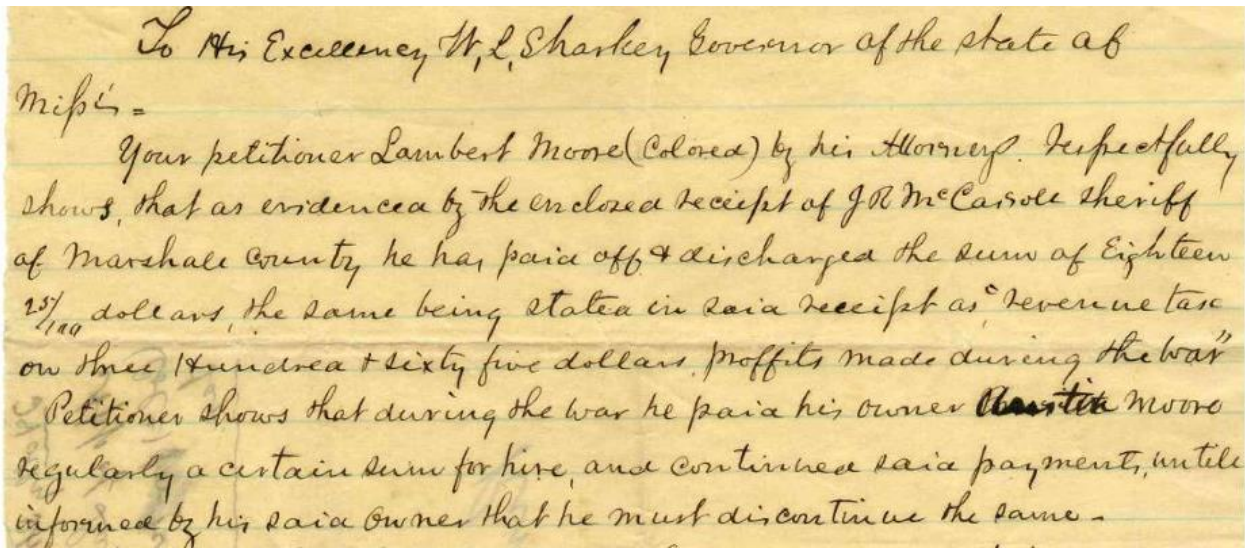 To His Excellency W, L, Sharkey Governor of the state of
Missi =
Your petitioner Lambert Moore (Colored) by his Attorneys. respectfully
shows, that as evidenced by the enclosed receipt of J R McCarroll sheriff
of Marshall county he has paid off & discharged the sum of Eighteen
25/100 dollars, the same being stated in said receipt as "revenue tax
on three Hundred & sixty five dollars, proffits made during the war"
Petitioner shows that during the war he paid his owner Austin Moore
regularly a certain sum for hire, and continued said payments, untill
informed by his said owner that he must discontinue the same -